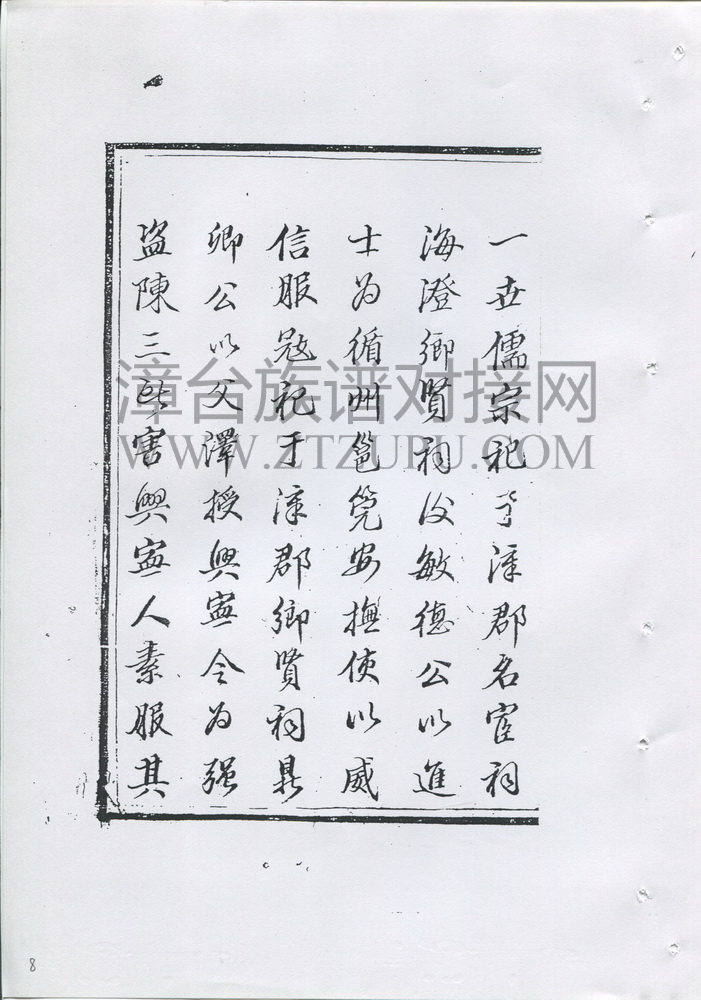 一世儒宗祀于漳郡名宦祠
海澄鄉賢祠汝敏德公以進
士为循州邕筦安撫使以威
信服寇祀于漳郡鄉賢祠晁
卿公以父澤授興寧令为强
盜陳三所害興寧人素服其
漳台族谱对接网
WWW.ZTZUPU.COM
8